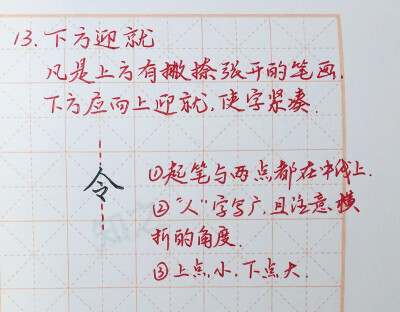 13.下方迎就
凡是上方有撇捺张开的笔画,
下方应向上迎就,使字紧凑.
令
①起笔与两点都在中线上.
②“人”字写广,且注意横
折的角度.
③上点,小,下点大.